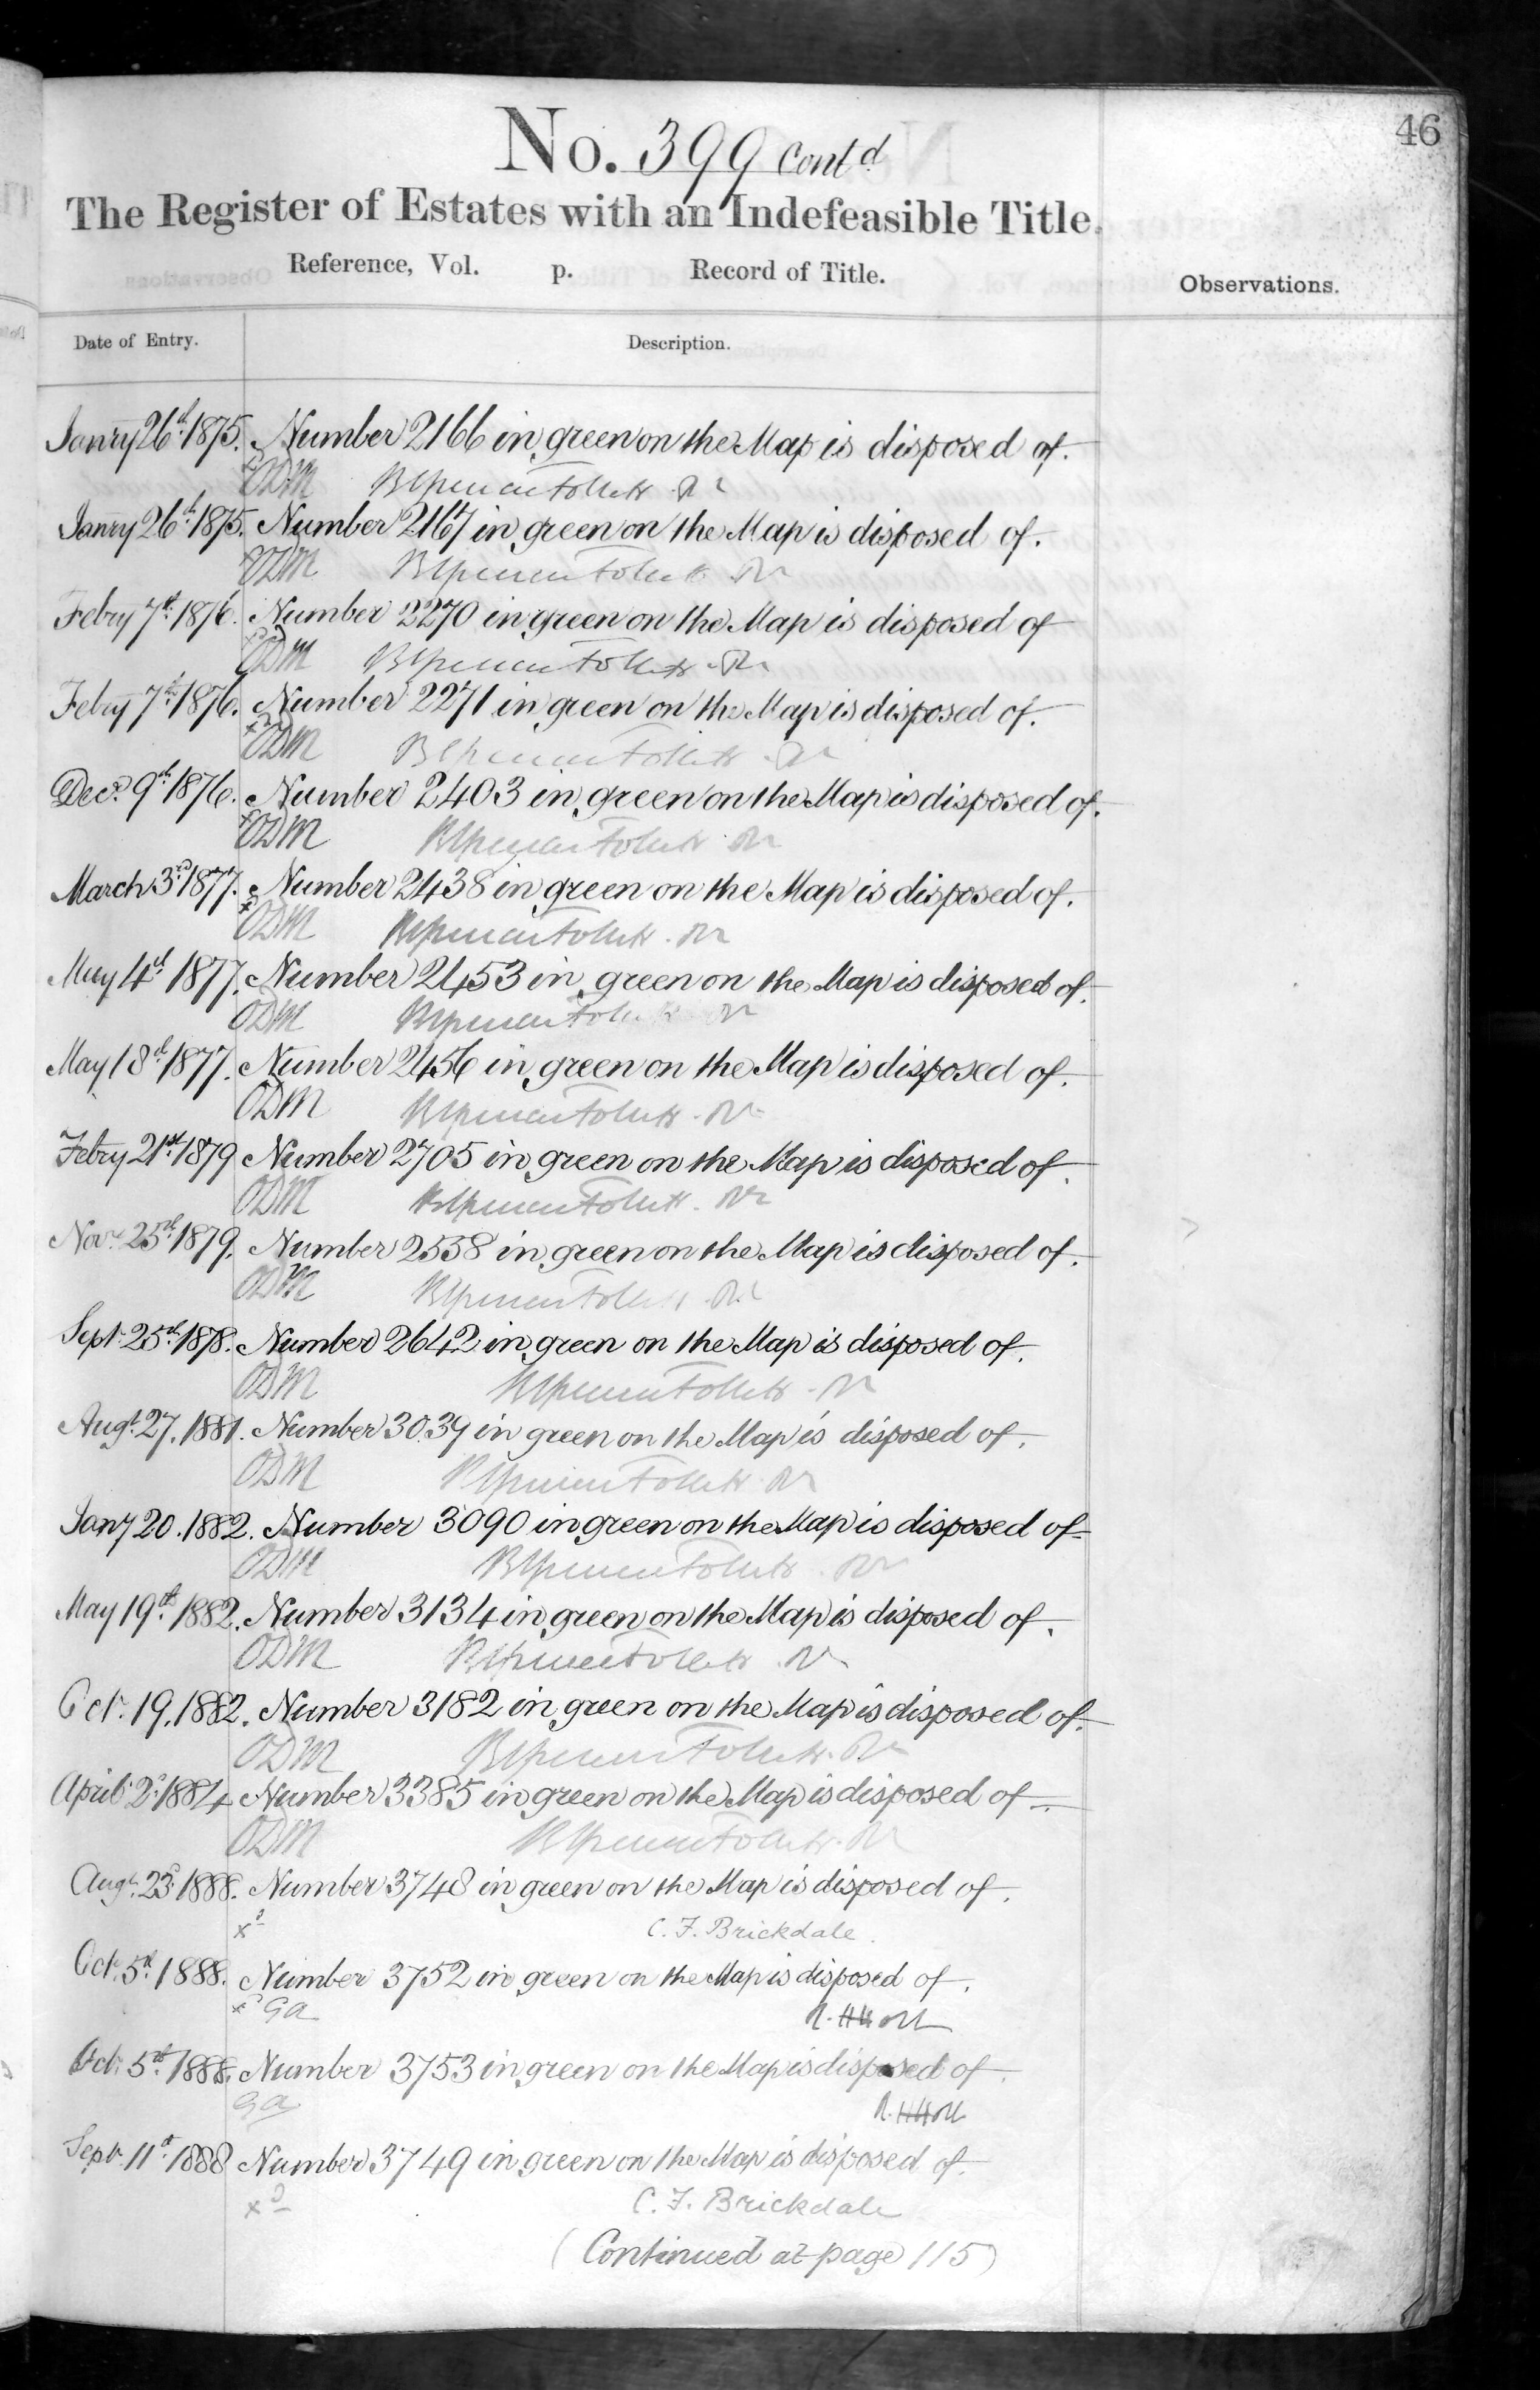 46
No. 399 Contd
The Register of Estates with an Indefeasible Title.
Reference, Vol. p. Record of Title.
Observations.
Date of Entry. Description.
Janry 26th 1875. Number 2166 in green on the Map is disposed of.
ODM
Janry 26th 1875. Number 2167 in green on the Map is disposed of.
ODM
Febry 7th 1876. Number 2270 in green on the Map is disposed of
ODM
Febry 7th 1876. Number 2271 in green on the Map is disposed of.
ODM
Decr 9th 1876. Number 2403 in green on the Map is disposed of.
ODM
March 3rd 1877. Number 2438 in green on the Map is disposed of.
ODM
May 4th 1877. Number 2453 in green on the Map is disposed of.
ODM
May 18th 1877. Number 2456 in green on the Map is disposed of.
ODM
Febry 21st 1879 Number 2705 in green on the Map is disposed of.
ODM
Novr 25th 1879. Number 2538 in green on the Map is disposed of.
ODM
Sept. 25th 1878. Number 2642 in green on the Map is disposed of.
ODM
Augt. 27. 1881. Number 3039 in green on the Map is disposed of.
ODM
Jany 20. 1882. Number 3090 in green on the Map is disposed of
ODM
May 19th 1882. Number 3134 in green on the Map is disposed of.
ODM
Oct. 19. 1882. Number 3182 in green on the Map is disposed of.
ODM
April 2d 1884 Number 3385 in green on the Map is disposed of.
ODM
Augt. 23d 1888. Number 3748 in green on the Map is disposed of.
C. F. Brickdale.
Oct. 5th 1888. Number 3752 in green on the Map is disposed of.
GA
Oct. 5th 1888. Number 3753 in green on the Map is disposed of.
GA
Sept. 11th 1888 Number 3749 in green on the Map is disposed of.
C. F. Brickdale
(Continued at page 115)